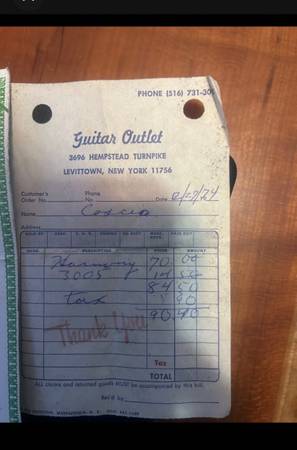 PHONE (516) 731-30
Guitar Outlet
3696 HEMPSTEAD TURNPIKE
LEVITTOWN, NEW YORK 11756
Customer's Phone
Order No. No. Date
Name Coscia
Address
SOLD BY CASH C. O. D. CHARGE ON ACCT. MDSE. RETD. PAID OUT
QUAN. DESCRIPTION PRICE AMOUNT
Harmony 70 00
3005 14 50
84 50
tax 5 90
90 40
Thank You
Tax
TOTAL
ALL claims and returned goods MUST be accompanied by this bill.
Rec'd by